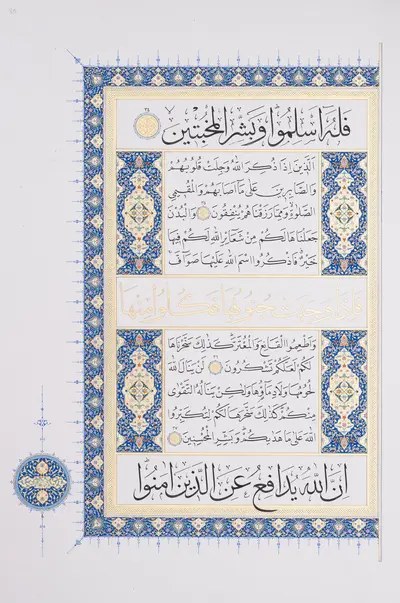 فَلَهُ أَسْلِمُوا وَبَشِّرِ الْمُخْبِتِينَ ٣٤
الَّذِينَ إِذَا ذُكِرَ اللَّهُ وَجِلَتْ قُلُوبُهُمْ
وَالصَّابِرِينَ عَلَىٰ مَا أَصَابَهُمْ وَالْمُقِيمِي
الصَّلَوٰةِ وَمِمَّا رَزَقْنَاهُمْ يُنْفِقُونَ ٣٥ وَالْبُدْنَ
جَعَلْنَاهَا لَكُمْ مِنْ شَعَائِرِ اللَّهِ لَكُمْ فِيهَا
خَيْرٌ فَاذْكُرُوا اسْمَ اللَّهِ عَلَيْهَا صَوَافَّ
فَإِذَا وَجَبَتْ جُنُوبُهَا فَكُلُوا مِنْهَا
وَأَطْعِمُوا الْقَانِعَ وَالْمُعْتَرَّ كَذَٰلِكَ سَخَّرْنَاهَا
لَكُمْ لَعَلَّكُمْ تَشْكُرُونَ ٣٦ لَنْ يَنَالَ اللَّهَ
لُحُومُهَا وَلَا دِمَاؤُهَا وَلَٰكِنْ يَنَالُهُ التَّقْوَىٰ
مِنْكُمْ كَذَٰلِكَ سَخَّرَهَا لَكُمْ لِتُكَبِّرُوا
اللَّهَ عَلَىٰ مَا هَدَاكُمْ وَبَشِّرِ الْمُحْسِنِينَ ٣٧
إِنَّ اللَّهَ يُدَافِعُ عَنِ الَّذِينَ آمَنُوا